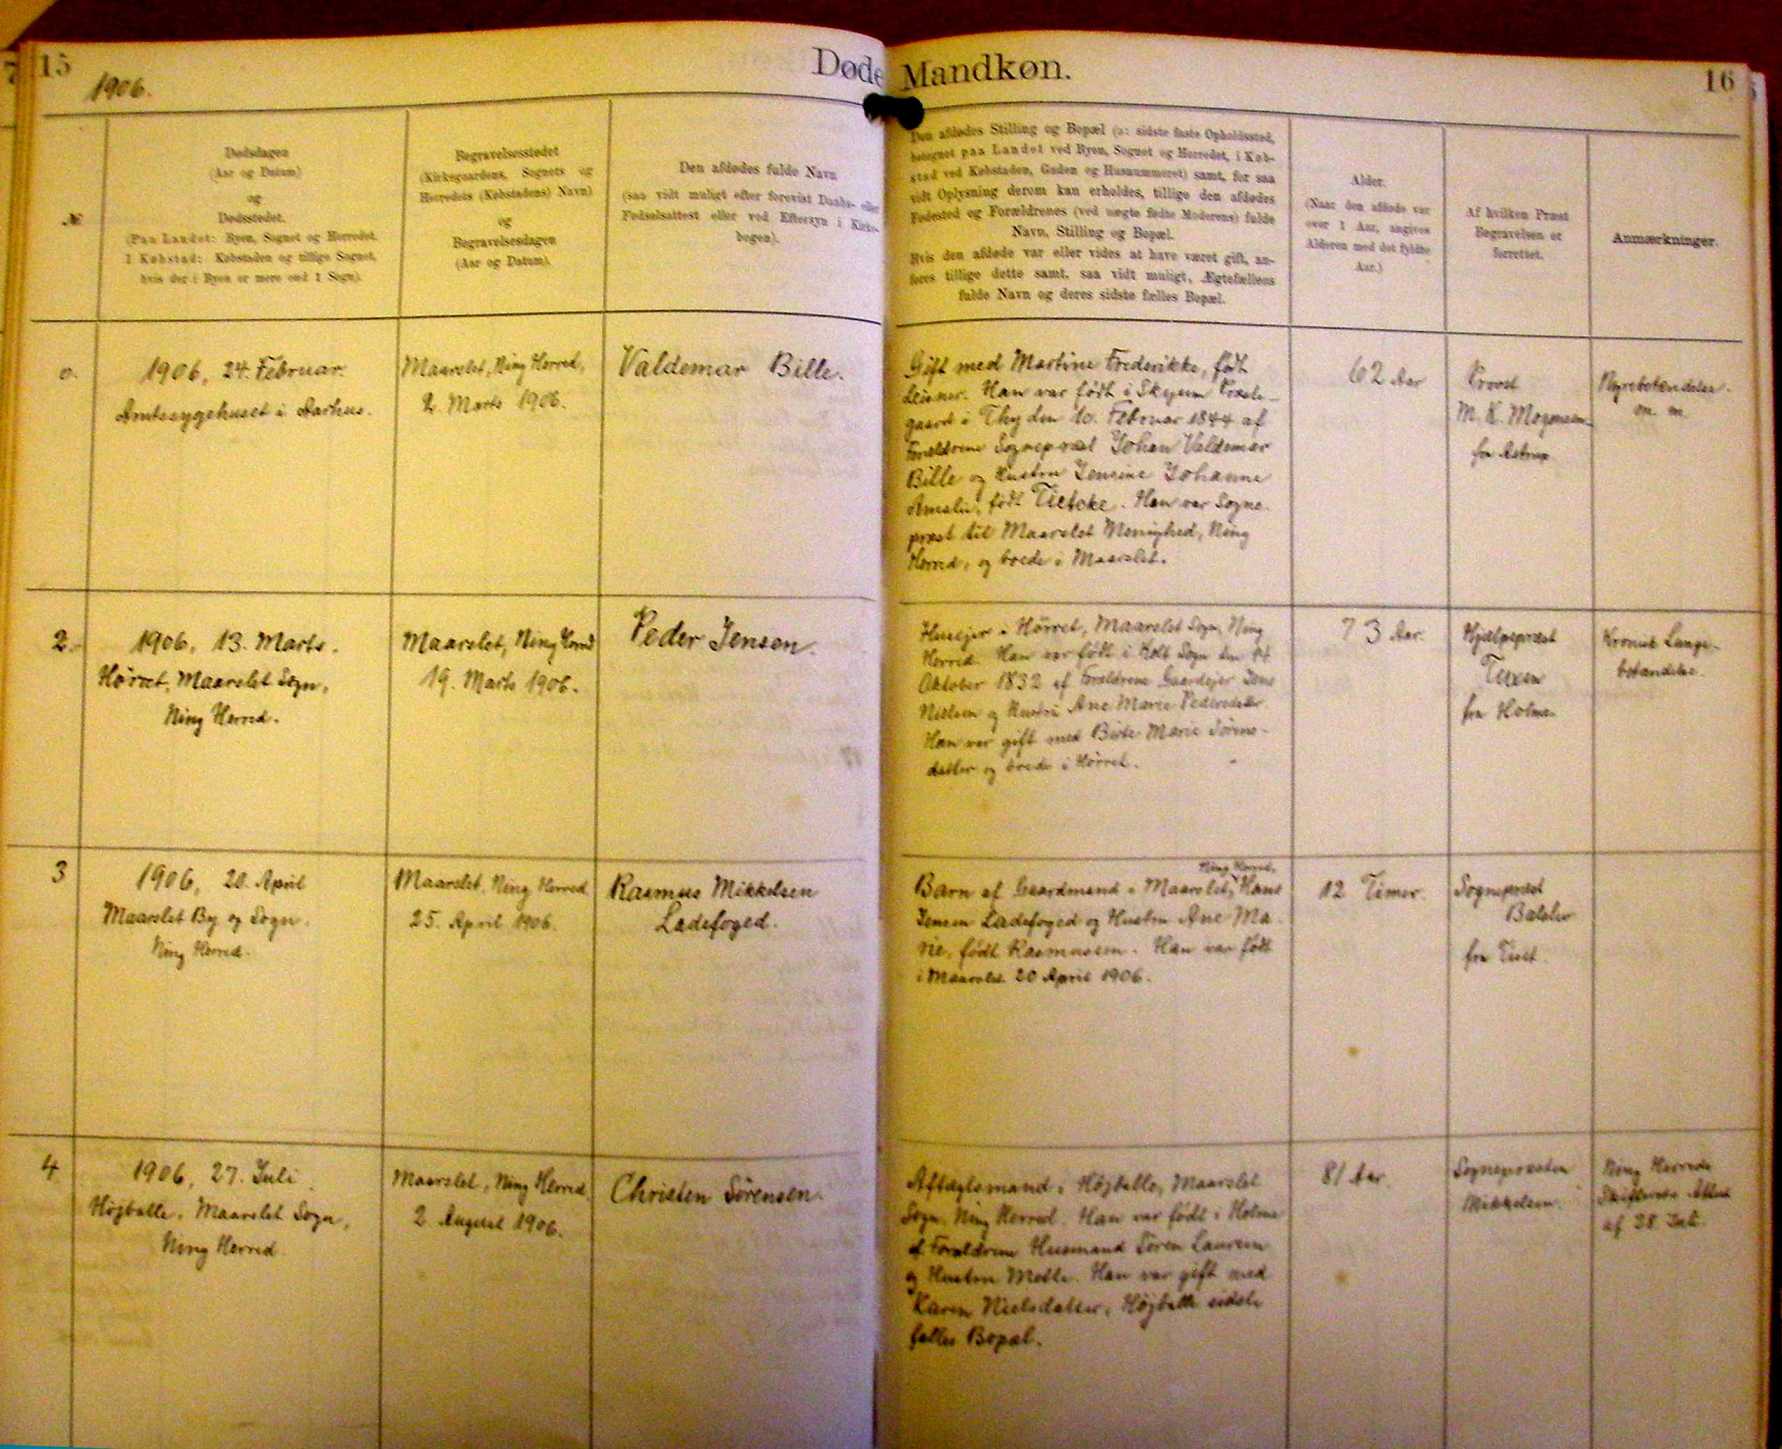 15
1906.
Døde
Mandkøn.
16
№
Dødsdagen
(Aar og Datum)
og
Dødsstedet.
(Paa Landet: Byen, Sognet og Herredet.
I Købstad: Købstaden og tillige Sognet,
hvis der i Byen er mere end 1 Sogn).
Begravelsesstedet
(Kirkegaardens, Sognets og
Herredets (Købstadens) Navn)
og
Begravelsesdagen
(Aar og Datum).
Den afdødes fulde Navn
(saa vidt muligt efter forevist Daabs- eller
Fødselsattest eller ved Eftersyn i Kirke-
bogen).
Den afdødes Stilling og Bopæl (ɔ: sidste faste Opholdssted,
betegnet paa Landet ved Byen, Sognet og Herredet, i Køb-
stad ved Købstaden, Gaden og Husnummeret) samt, for saa
vidt Oplysning derom kan erholdes, tillige den afdødes
Fødested og Forældrenes (ved uægte fødte Moderens) fulde
Navn, Stilling og Bopæl.
Hvis den afdøde var eller vides at have været gift, an-
føres tillige dette samt, saa vidt muligt, Ægtefællens
fulde Navn og deres sidste fælles Bopæl.
Alder.
(Naar den afdøde var
over 1 Aar, angives
Alderen med det fyldte
Aar.)
Af hvilken Præst
Begravelsen er
forrettet.
Anmærkninger.
1906, 24. Februar.
Amtssygehuset i Aarhus.
Maarslet, Ning Herred,
2. Marts 1906.
Valdemar Bille.
Gift med Martine Frederikke, født
Leisner. Han var født i Skyum Præste-
gaard i Thy den 10. Februar 1844 af
Forældrene Sognepræst Johan Valdemar
Bille og Hustru Jensine Johanne
Amalie, født Tietcke. Han var Sogne-
præst til Maarslet Menighed, Ning
Herred, og boede i Maarslet.
62 Aar
Provst
M. K. Mogensen
fra Astrup
Nyrebetændelse
m. m.
2.
1906, 13. Marts.
Hørret, Maarslet Sogn,
Ning Herred.
Maarslet, Ning Herred
19. Marts 1906.
Peder Jensen.
Husejer i Hørret, Maarslet Sogn, Ning
Herred. Han var født i Kolt Sogn den 14
Oktober 1832 af Forældrene Gaardejer Jens
Nielsen og Hustru Ane Marie Pedersdatter
Han var gift med Birte Marie Sørens-
datter og boede i Hørret.
73 Aar.
Hjælpepræst
Tuxen
fra Holme
Kronisk Lunge-
betændelse.
3
1906, 20. April
Maarslet By og Sogn.
Ning Herred.
Maarslet, Ning Herred
25. April 1906.
Rasmus Mikkelsen
Ladefoged.
Ning Herred,
Barn af Gaardmand i Maarslet, Hans
Jensen Ladefoged og Hustru Ane Ma-
rie, født Rasmussen. Han var født
i Maarslet 20 April 1906.
12 Timer.
Sognepræst
Balslev
fra Tiset.
4
1906, 27. Juli.
Højballe, Maarslet Sogn,
Ning Herred
Maarslet, Ning Herred.
2 August 1906.
Christen Sørensen.
Aftægtsmand i Højballe, Maarslet
Sogn, Ning Herred. Han var født i Holme
af Forældrene Husmand Søren Laursen
og Hustru Mette. Han var gift med
Karen Nielsdatter, Højballe sidste
fælles Bopæl.
81 Aar.
Sognepræsten
Mikkelsen.
Ning Herreds
Skifterets Attest
af 28 Juli.